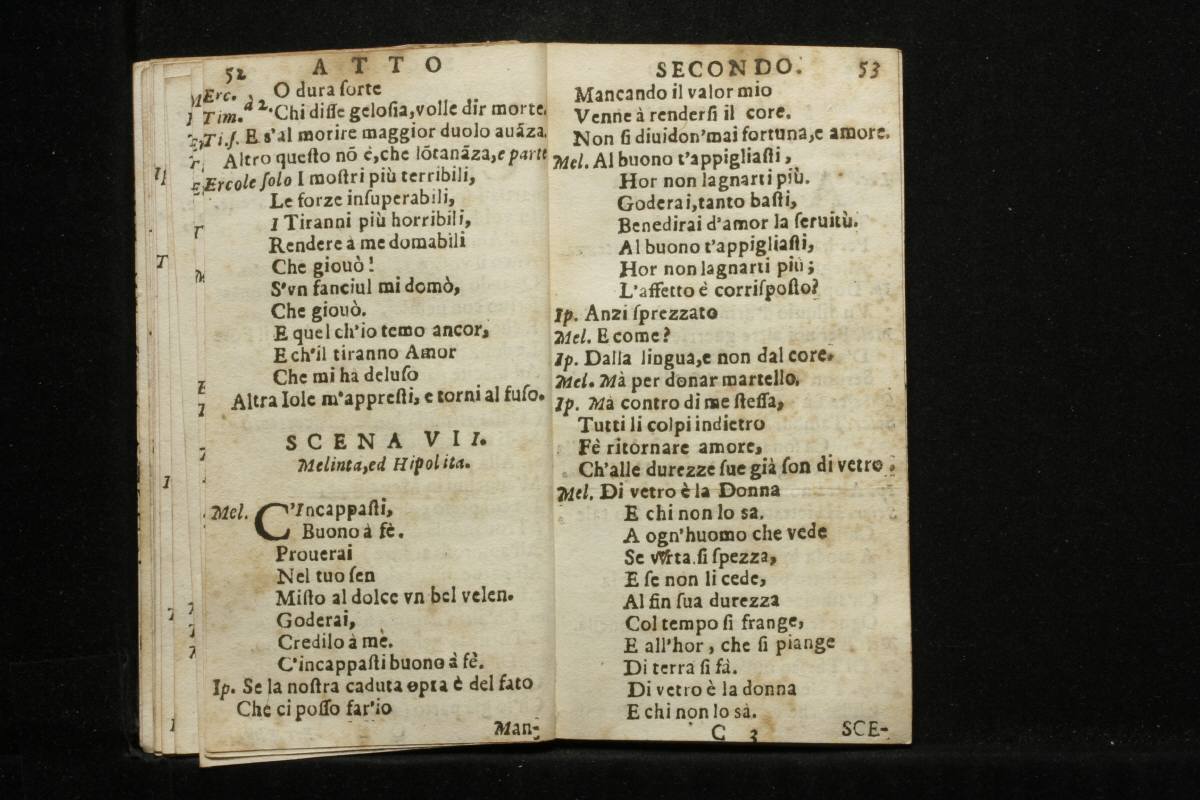 52 ATTO
Erc. à 2. O dura ſorte
Tim. Chi diſſe geloſia, volle dir morte.
Ti.ſ. E s'al morire maggior duolo auāza,
Altro queſto nō é, che lōtanāza, e parte
Ercole ſolo I moſtri più terribili,
Le forze inſuperabili,
I Tiranni più horribili,
Rendere à me domabili
Che giouò!
S'vn fanciul mi domò,
Che giouò.
E quel ch'io temo ancor,
E ch'il tiranno Amor
Che mi hà deluſo
Altra Iole m'appreſti, e torni al fuſo.
SCENA VII.
Melinta, ed Hipolita.
Mel. C'Incappaſti,
Buono à fè.
Prouerai
Nel tuo ſen
Miſto al dolce vn bel velen.
Goderai,
Credilo à mè.
C'incappaſti buono à fè.
Ip. Se la noſtra caduta opra è del fato
Che ci poſſo far'io
Man-
SECONDO. 53
Mancando il valor mio
Venne à renderſi il core.
Non ſi diuidon'mai fortuna, e amore.
Mel. Al buono t'appigliaſti,
Hor non lagnarti più.
Goderai, tanto baſti,
Benedirai d'amor la ſeruitù.
Al buono t'appigliaſti,
Hor non lagnarti più;
L'affetto è corriſpoſto?
Ip. Anzi ſprezzato
Mel. E come?
Ip. Dalla lingua, e non dal core.
Mel. Mà per donar martello.
Ip. Mà contro di me ſteſſa,
Tutti li colpi indietro
Fè ritornare amore,
Ch'alle durezze ſue già ſon di vetro.
Mel. Di vetro è la Donna
E chi non lo sa.
A ogn'huomo che vede
Se vrta ſi ſpezza,
E ſe non li cede,
Al fin ſua durezza
Col tempo ſi frange,
E all'hor, che ſi piange
Di terra ſi fà.
Di vetro è la donna
E chi non lo sà.
C 3 SCE-